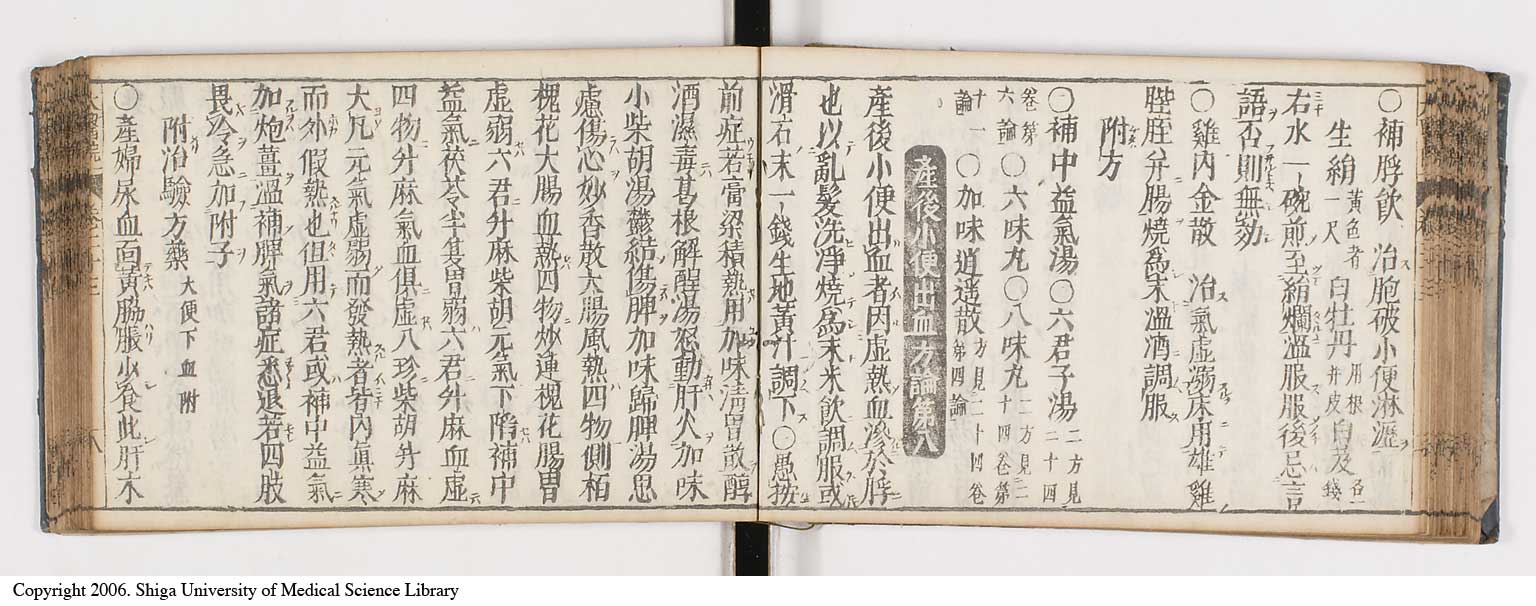 ○補脬飲 治胞破小便淋瀝
生絹 黃色者一尺 白牡丹 用根并皮 白及 各一錢
右水一碗煎至絹爛溫服服後忌言
語否則無効
○雞內金散 治氣虛溺床用雄雞
膍胵并腸燒為末溫酒調服
附方
○補中益氣湯○六君子湯 二方見二十四
卷第六論 ○六味丸○八味丸 二方見二十四卷第
十一論 ○加味逍遙散 方見二十四卷第四論
產後小便出血方論第八
產後小便出血者因虛熱血滲於脬
也以亂髮洗淨燒為末米飲調服或
滑石末一錢生地黃汁調下○愚按
前症若膏粱積熱用加味清胃散醇
酒濕毒葛根解酲湯怒動肝火加味
小柴胡湯鬱結傷脾加味歸脾湯思
慮傷心妙香散大腸風熱四物側栢
槐花大腸血熱四物炒連槐花腸胃
虛弱六君升麻柴胡元氣下陷補中
益氣茯苓半夏胃弱六君升麻血虛
四物升麻氣血俱虛八珍柴胡升麻
大凡元氣虛弱而發熱者皆內真寒
而外假熱也但用六君或補中益氣
加炮薑溫補脾氣諸症悉退若四肢
畏冷急加附子
附治驗方藥 大便下血附
○產婦尿血面黃脇脹少食此肝木
Copyright 2006. Shiga University of Medical Science Library